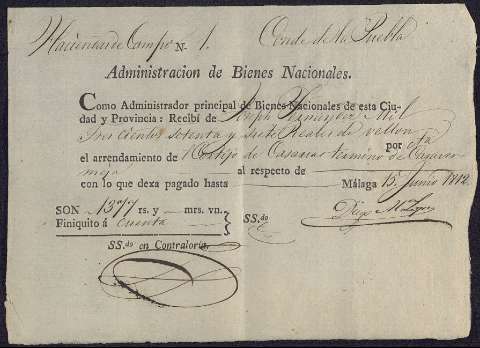 Haciendas de Campo N. 1. Conde de la Puebla
Administracion de Bienes Nacionales.
Como Administrador principal de Bienes Nacionales de esta Ciu-
dad y Provincia: Recibí de Joseph Fernandez Mil
Trescientos setenta y siete Reales de vellon
por
el arrendamiento de Cortijo de termino de
al respecto de
con lo que dexa pagado hasta Málaga 15 Junio 1812.
SON 1377 rs. y mrs. vn.
Finiquito á cuenta SS.do
SS.do en Contraloria.